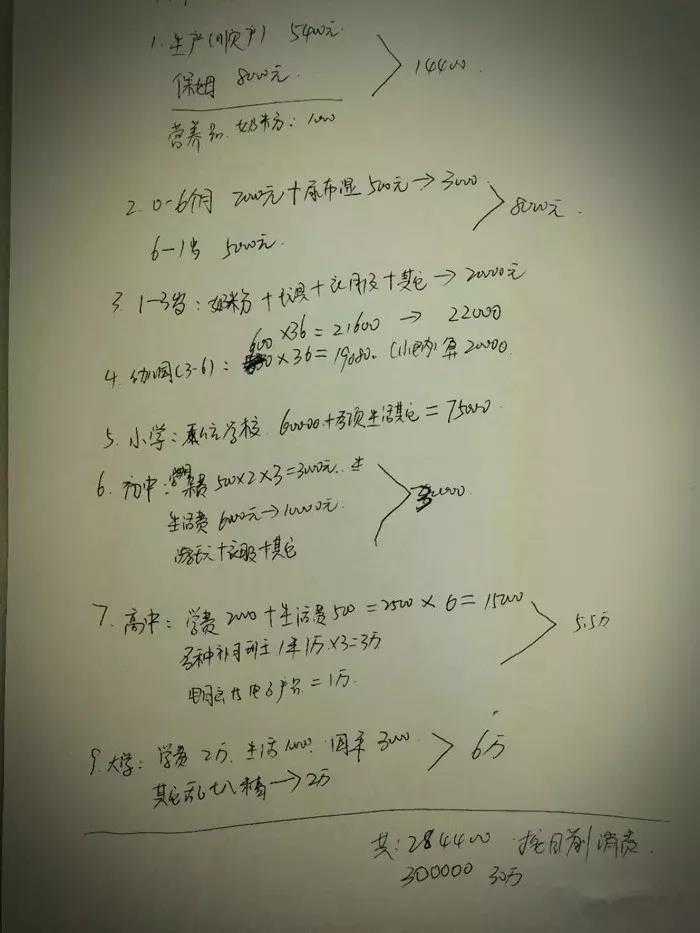 1. 生产(顺产) 5400元
保姆 8000元
14400.
营养品.奶粉: 1000
2. 0-6个月 2000元+尿布湿500元→3000.
8000元.
6-1岁 5000元.
3. 1-3岁: 奶粉++衣服+其它→20000元
600×36=21600 → 22000
4. 幼儿园(3-6): ×36=19080. 算20000.
5. 小学: 学校. 60000+各项生活其它=75000.
6. 初中: 学费 500×2×3=3000元.
生活费 6000元→10000元.
+衣服+其它
7. 高中: 学费 2000+生活费500=2500×6=15000
各种补习班 1年1万×3=3万
5.5万
电子产品=1万.
9. 大学: 学费 2万. 生活1000. 回来 3000.
6万
其它乱七八糟→2万
共:284400 按目前消费.
300000 30万